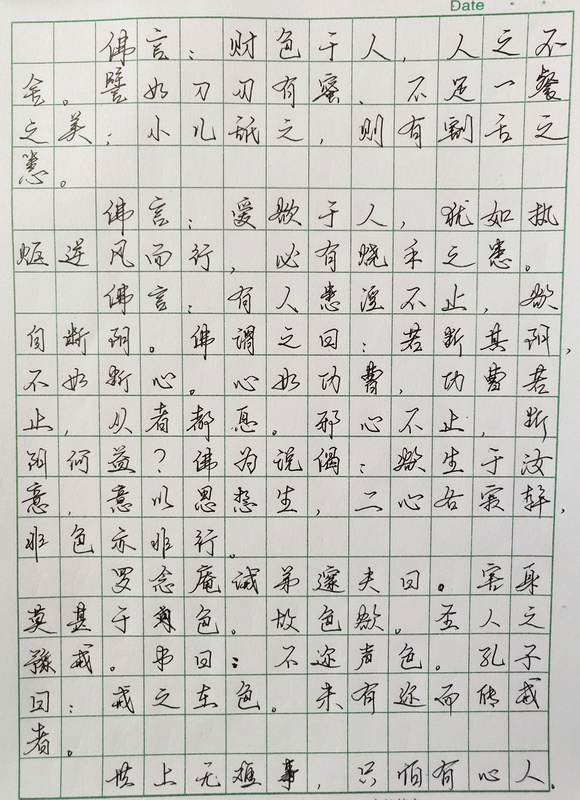 Date
佛言：财色于人，人之不
舍。譬如刀刃有蜜，不足一餐
之美；小儿舐之，则有割舌之
患。
佛言：爱欲于人，犹如执
炬逆风而行，必有烧手之患。
佛言：有人患淫不止，欲
自断阴。佛谓之曰：若断其阴，
不如断心。心如功曹，功曹若
止，从者都息。邪心不止，断
阴何益？佛为说偈：欲生于汝
意，意以思想生，二心各寂静，
非色亦非行。
罗念庵诫弟邃夫曰。害身
莫甚于色。故色欲。圣人之
豫戒。书曰：不迩声色。孔子
曰：戒之在色。未有迩而能戒
者。
世上无难事，只怕有心人。